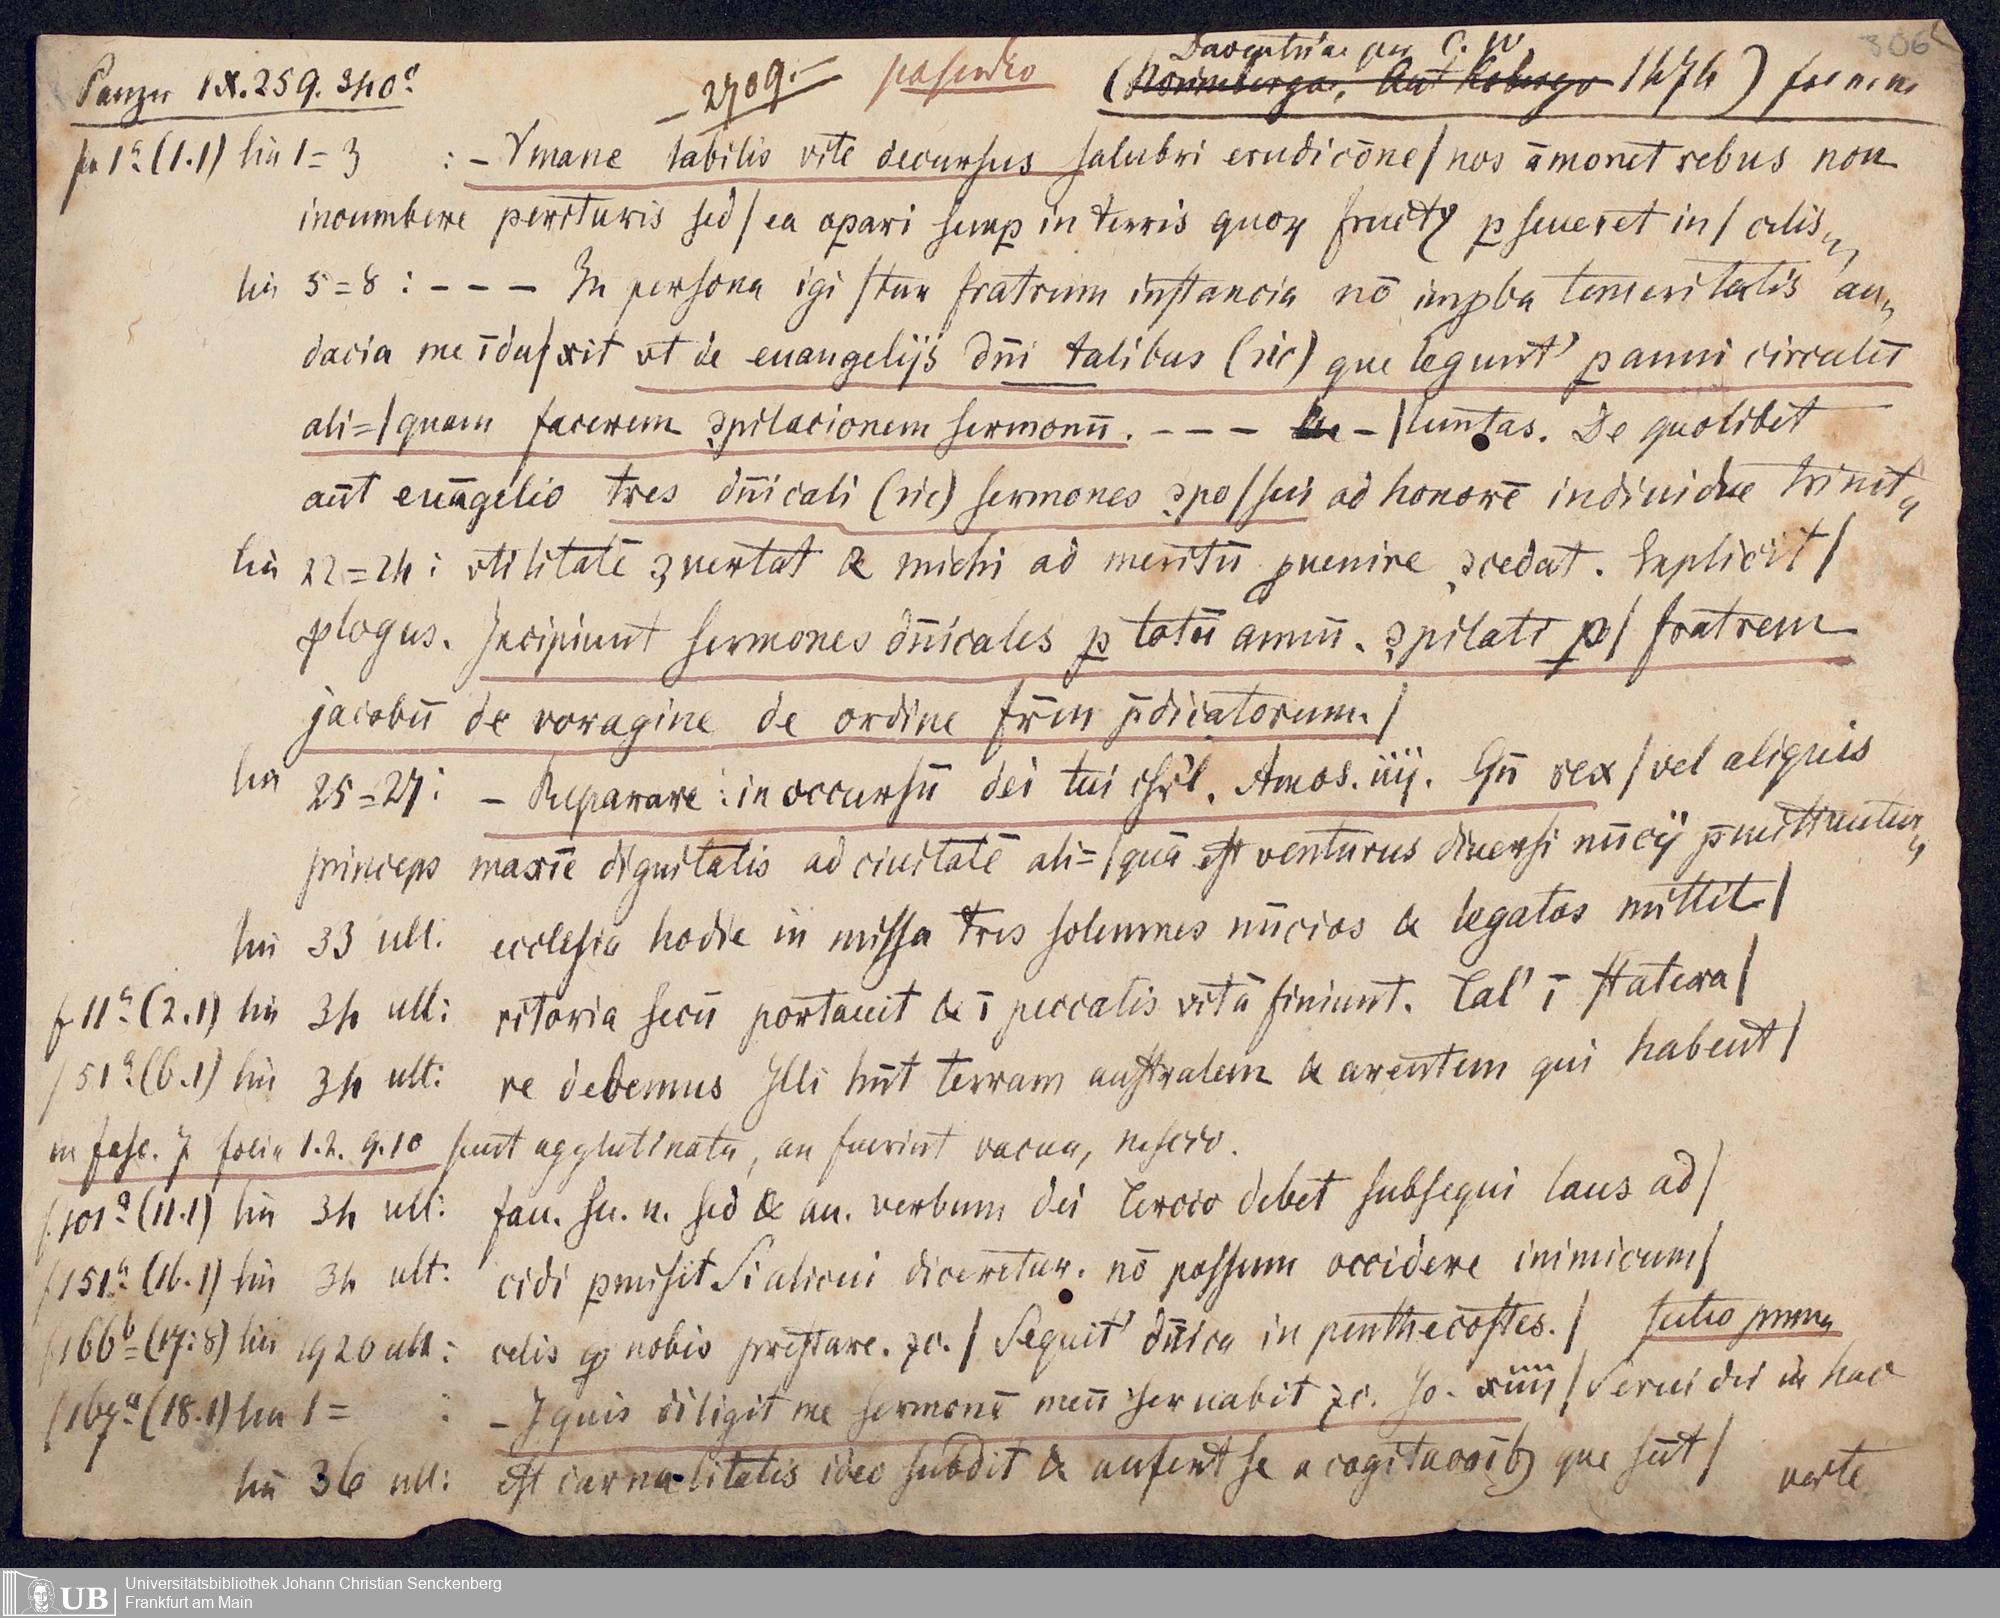 306
Daventriae per C. W
Panzer IX.259.340c 2709. (Norimbergae, Ant Koberger 1474)
1a (1.1) lin 1=3 : – Ymane labilis vite decursus salubri erudicōne/nos āmonet rebus non
incumbere perituris sed/ea opari semꝑ in terris quoꝝ fructꝰ ꝑseueret in/celis,,
lin 5=8 : – – – In persona igi/tur fratrum instancia nō impba temeritatis au,,
dacia me īdu/xit vt de euangelijs dn̄i talibus (sic) que legunt' ꝑ anni circulū
ali=/quam facerem ꝯpilacionem sermonū. – – – –/luntas. De quolibet
aūt euāngelio tres dn̄icali (sic) sermones ꝯpo/sui ad honorē indiuidue trinit,,
lin 22=24: vtilitatē ꝯuertat & michi ad meritū ꝓuenire ꝯcedat. Explicit/
ꝓlogus. Incipiunt sermones dn̄icales ꝑ totū annū. ꝯpilati ꝑ/fratrem
jacobū de voragine de ordine fr̄m p̄dicatorum./
lin 25=27: – Reparare: in occursū dei tui isrl. Amos. iiij. Qn̄ rex/vel aliquis
princeps maxīe dignitatis ad ciuitatē ali=/quā est venturus diuersi nūcij p̄mittuntur,,
lin 33 ult. ecclesia hodie in missa tres solemnes nūcios & legatos mittit/
f 11a (2.1) lin 34 ult: ritoria secū portauit & ī peccatis vitā finiunt. Tal' ī statera/
f 51a (6.1) lin 34 ult: re debemus Illi hn̄t terram australem & arentem qui habent/
in fasc. 7 folia 1.2. 9.10 sunt agglutinata, an fuerint vacua, nescio.
f. 101a (11.1) lin 34 ult: fau. su. n. sed & au. verbum dei Tercio debet subsequi laus ad/
f 151a (16.1) lin 34 ult: cidi ꝑmisit Si alicui diceretur. nō possum occidere inimicum/
f 166b (17:8) lin 19 20 ult: celis ꝙ nobis prestare. ⁊c./Sequit' dn̄ica in penthecostes./
f 167a (18.1) lin 1= : – I quis diligit me sermonē meū seruabit ⁊c. Jo. xiiii/Serui dei in hac
lin 36 ult: est carnalitatis ideo subdit & aufert se a cogitacōib⁊ que sūt/ verte
UB Universitätsbibliothek Johann Christian Senckenberg
Frankfurt am Main